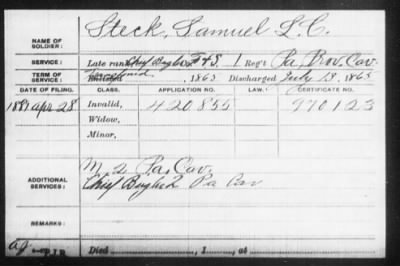 NAME OF SOLDIER: Steck, Samuel L. C.
SERVICE: Late rank Chief Bugler F & S 1 Reg't Pa. Prov. Cav.
TERM OF SERVICE: Enrolled, 1863 Discharged July 13, 1865
DATE OF FILING. CLASS. APPLICATION NO. LAW. CERTIFICATE NO.
Apr 28 Invalid, 420855 970123
Widow,
Minor,
ADDITIONAL SERVICES: M 2 Pa. Cav.
Chief Bugler 2 Pa Cav
REMARKS:
Died , 1 , at